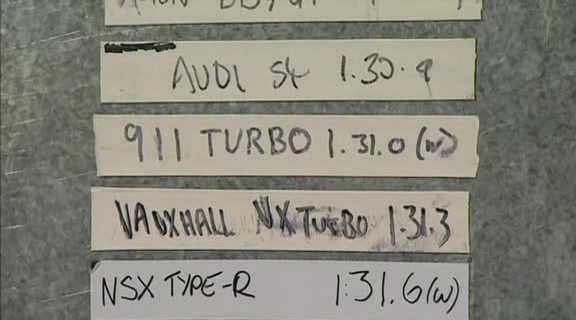 AUDI S4 1.30.9
911 TURBO 1.31.0 (w)
VAUXHALL VX TURBO 1.31.3
NSX TYPE-R 1:31.6 (w)